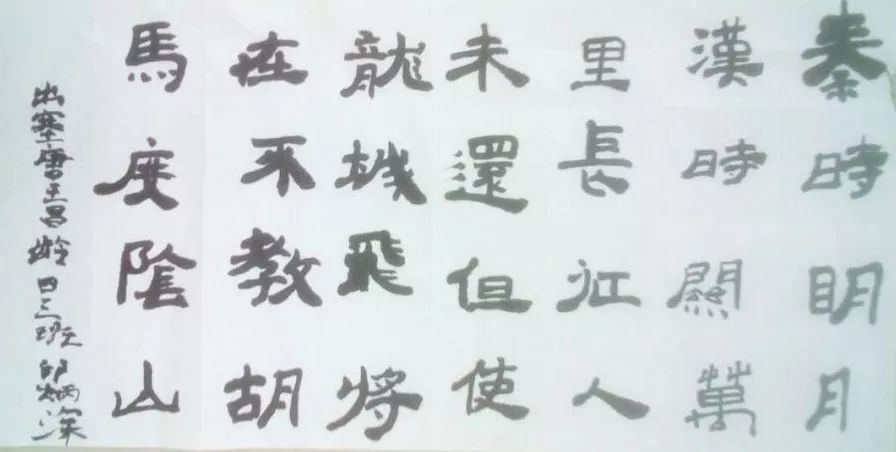 秦時明月
漢時關萬
里長征人
未還但使
龍城飛將
在不教胡
馬度陰山
出塞唐王昌龄 日三班 邱炳深